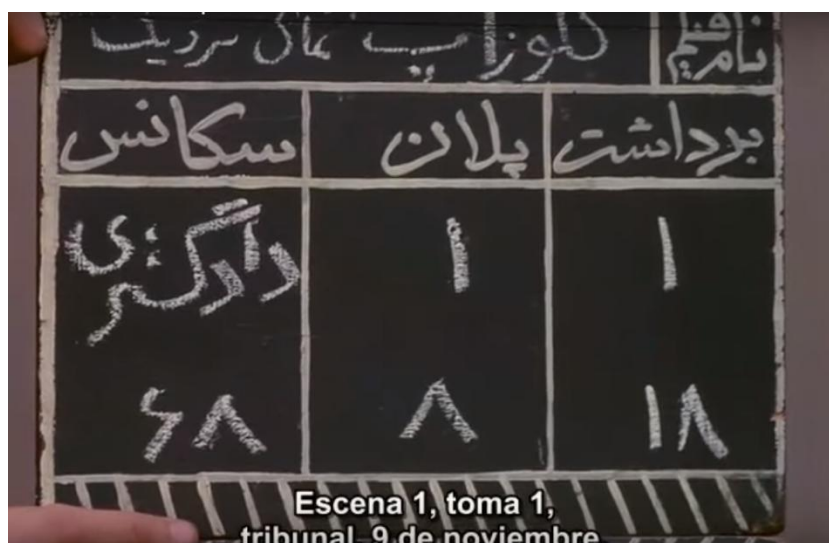 نام فیلم کلوزآپ نمای نزدیک
برداشت پلان سکانس
۱ ۱ دادگستری
۱۸ ۸ ۶۸
Escena 1, toma 1,
tribunal, 9 de noviembre